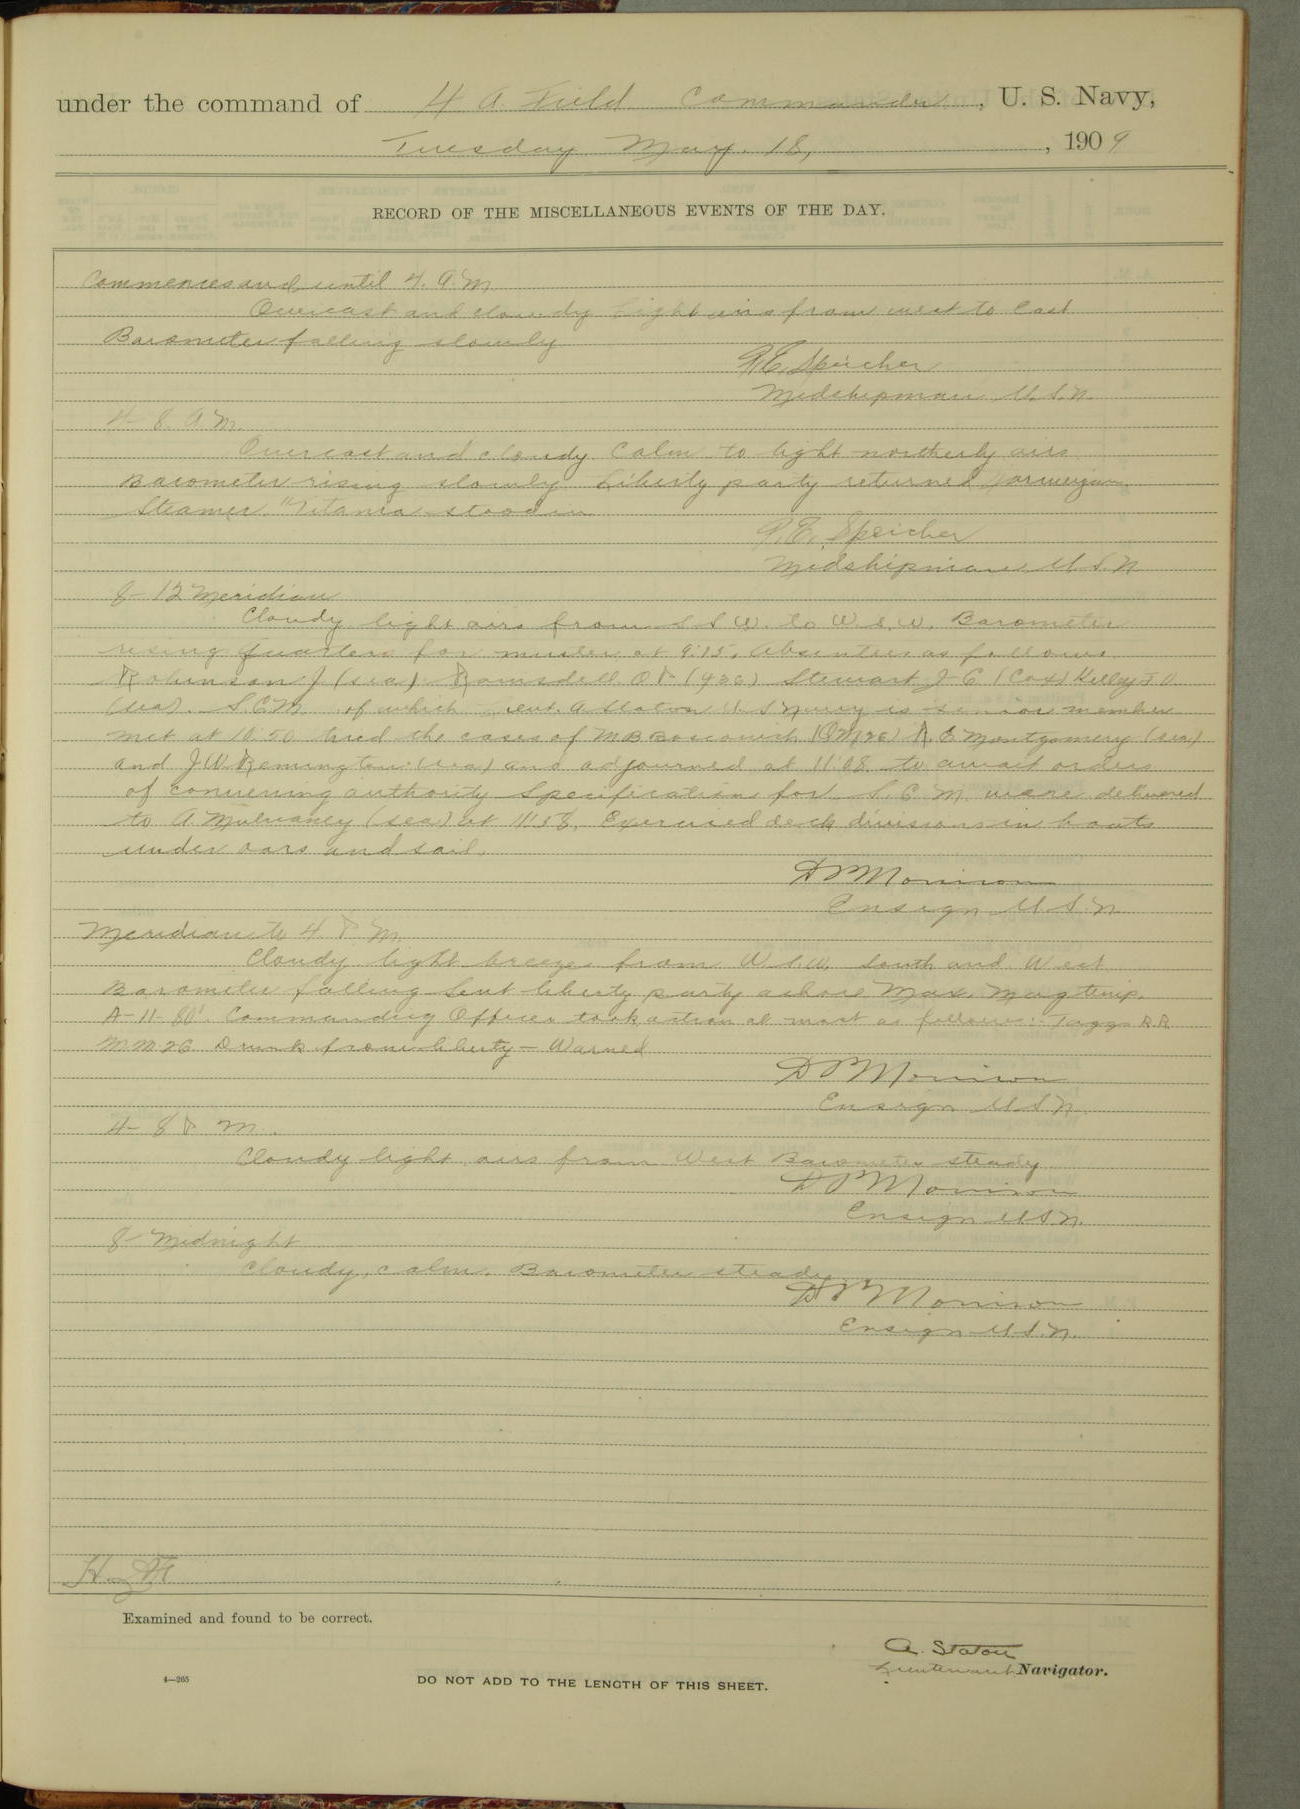 under the command of H A Field Commander, U. S. Navy,
Tuesday May. 18, , 1909
RECORD OF THE MISCELLANEOUS EVENTS OF THE DAY.
Commences and until 4. A. M
Overcast and cloudy Light airs from west to East
Barometer falling slowly
R E, Speicher
Midshipman U. S. N.
4- 8. A. M.
Overcast and cloudy Calm to light northerly airs
Barometer rising slowly Liberty party returned Norwegian
Steamer "Titania stood in
R. E. Speicher
Midshipman U. S. N
8- 12 Meridian
Cloudy light airs from S S W. to W. S. W. Barometer
rising Quarters for muster at 9:15. Absentees as follows
Robinson J (sea) Ramsdell O P Stewart J C (Cox) Kelley J O
(sea). S. C M of which A Staton U S Navy is senior member
met at 10:50 tried the cases of M B R. E Montgomery (sea)
and J W. Remington (sea) and adjourned at 11:08 to await orders
of convening authority Specifications for S. C M. were delivered
to A Mulvaney (sea) at 11:58. Exercised deck divisions in boats
under oars and sail.
D P Morrison
Ensign U. S. N
Meridian to 4 P. M.
Cloudy light breezes from W S. W. South and West
Barometer falling Sent liberty party ashore Max. Mag temp.
A-11-80°. Commanding Officer took action at mast as follows:- R R
M. M. 2C Drunk from liberty - Warned
D P Morrison
Ensign U S N.
4- 8 P M.
Cloudy light airs from West Barometer steady
D P Morrison
Ensign U S N.
8- Midnight
Cloudy, calm. Barometer steady
D P Morrison
Ensign U. S. N.
Examined and found to be correct.
A. Staton
Lieutenant Navigator.
4—265
DO NOT ADD TO THE LENGTH OF THIS SHEET.